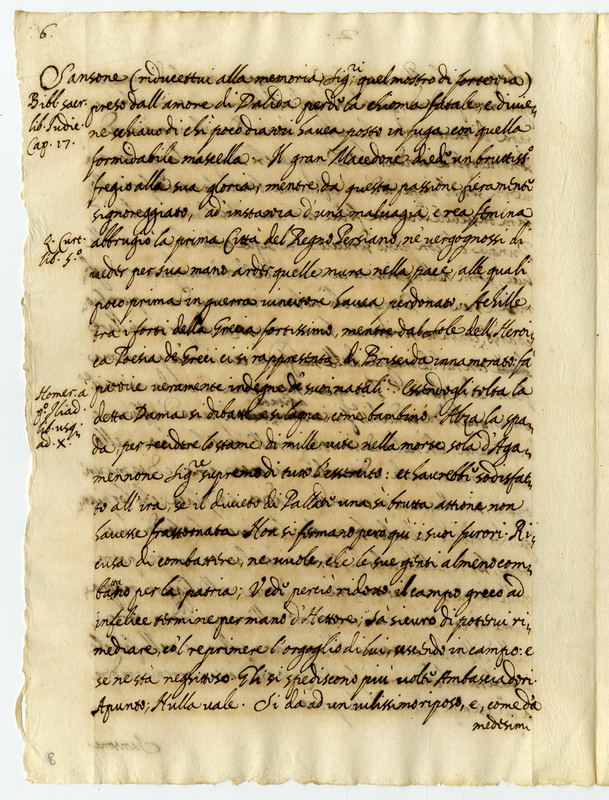 6.
Sansone (riducettui alla memoria, Sig.ri quel mostro di fortezza)
Bibl. sacr.
lib. Iudic.
Cap. 17.
preso dall'amore di Dalida perdè la chioma fatale, e divie-
ne schiavo di chi poco dianzi havea posto in fuga con quella
formidabile mascella. Il gran Macedone diede un bruttiss.o
fregio alla sua gloria, mentre da questa passione fieramente
signoreggiato, ad instanza d'una malvagia, e rea femina
Q. Curt.
lib. 5.o
abbrugiò la prima Città del Regno Persiano, ne vergognossi di
veder per sua mano arder quelle mura nella pace, alle quali
poco prima in guerra vincitore havea perdonato. Achille
trà i forti della Grecia fortissimo, mentre dal sole dell'Heroi-
ca Poesia de' Greci ci si rappresenta di Briseida innamorato: fà
Homer. a
p.o Iliad.
lib. usq.
ad. X.
pazzie veramente indegne de' suoi natali. Essendogli tolta la
detta Dama si dibatte e si lagna come bambino. Alza la spa-
da, per recidere lo stame di mille vite nella morte sola d'Aga-
mennone Sig.re supremo di tutto l'essercito: et havrebbe sodisfat-
to all'ira, se il divieto di Pallade una sì brutta attione non
havesse frastornata. Hor si fermano però quì i suoi furori. Ri-
cusa di combattere, ne vuole, che le sue genti almeno com-
battano per la patria; Vede perciò ridotto il campo greco ad
infelice termine per mano d'Hettore; Sà sicuro di potervi ri-
mediare, co'l reprimere l'orgoglio di lui, uscendo in campo: e
se ne stà neghittoso. Gli si spediscono più volte Ambasciadori.
Apunto; Nulla vale. Si dà ad un vilissimo riposo, e, come da
medesimi
8